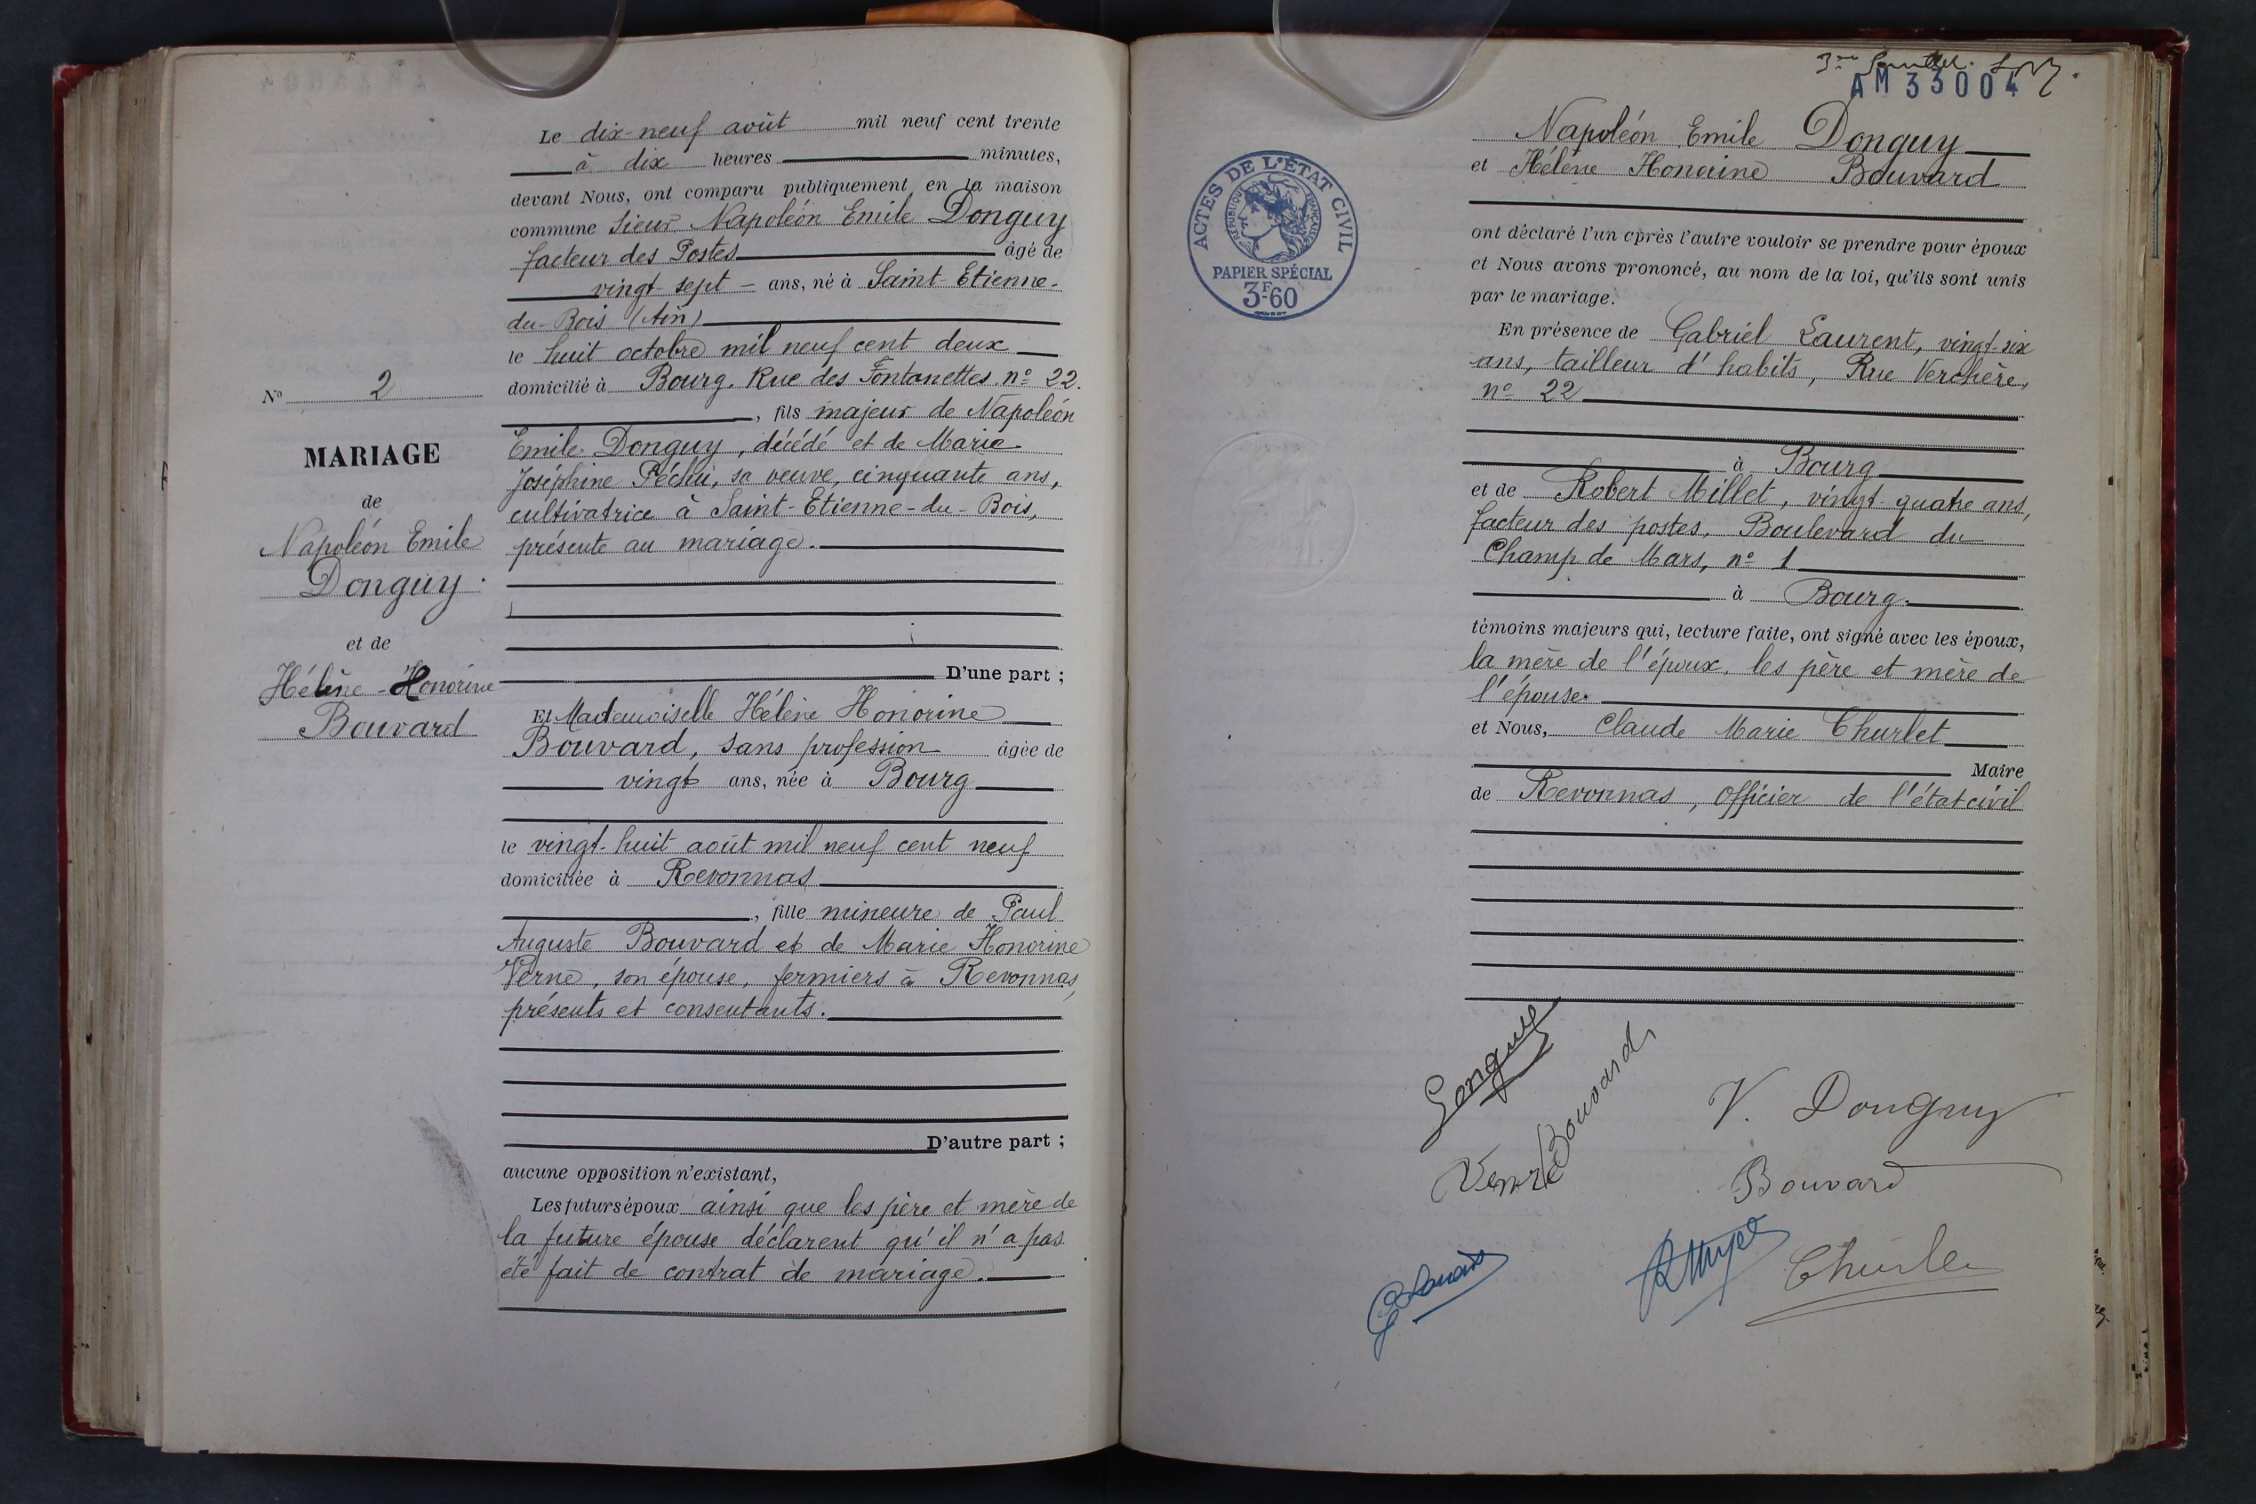 Le dix-neuf août mil neuf cent trente
à dix heures minutes,
devant Nous, ont comparu publiquement en la maison
commune Sieur Napoléon Emile Donguy
facteur des Postes âgé de
vingt-sept ans, né à Saint-Etienne-
du-Bois (Ain)
le huit octobre mil neuf cent deux
domicilié à Bourg. Rue des Fontanettes n° 22.
, fils majeur de Napoléon
Emile Donguy, décédé et de Marie
Joséphine Péchu, sa veuve, cinquante ans,
cultivatrice à Saint-Etienne-du-Bois,
présente au mariage.
D'une part ;
Et Mademoiselle Hélène Honorine
Bouvard, sans profession âgée de
vingt ans, née à Bourg
le vingt-huit août mil neuf cent neuf
domiciliée à Revonnas
, fille mineure de Paul
Auguste Bouvard et de Marie Honorine
Verne, son épouse, fermiers à Revonnas,
présents et consentants.
D'autre part ;
aucune opposition n'existant,
Les futurs époux ainsi que les père et mère de
la future épouse déclarent qu'il n'a pas
été fait de contrat de mariage.
N° 2
MARIAGE
de
Napoléon Emile
Donguy.
et de
Hélène-Honorine
Bouvard
AM 33004
Napoléon Emile Donguy
et Hélène Honorine Bouvard
ACTES DE L'ÉTAT CIVIL
RÉPUBLIQUE FRANÇAISE
PAPIER SPÉCIAL
3F.60
ont déclaré l'un après l'autre vouloir se prendre pour époux
et Nous avons prononcé, au nom de la loi, qu'ils sont unis
par le mariage.
En présence de Gabriel Laurent, vingt-six
ans, tailleur d'habits, Rue Verchère,
n° 22
à Bourg
et de Robert Millet, vingt-quatre ans,
facteur des postes, Boulevard du
Champ de Mars, n° 1
à Bourg.
témoins majeurs qui, lecture faite, ont signé avec les époux,
la mère de l'époux, les père et mère de
l'épouse.
et Nous, Claude Marie Churlet
Maire
de Revonnas, officier de l'état civil
Donguy
Bouvard
V. Donguy
Verne
Bouvard